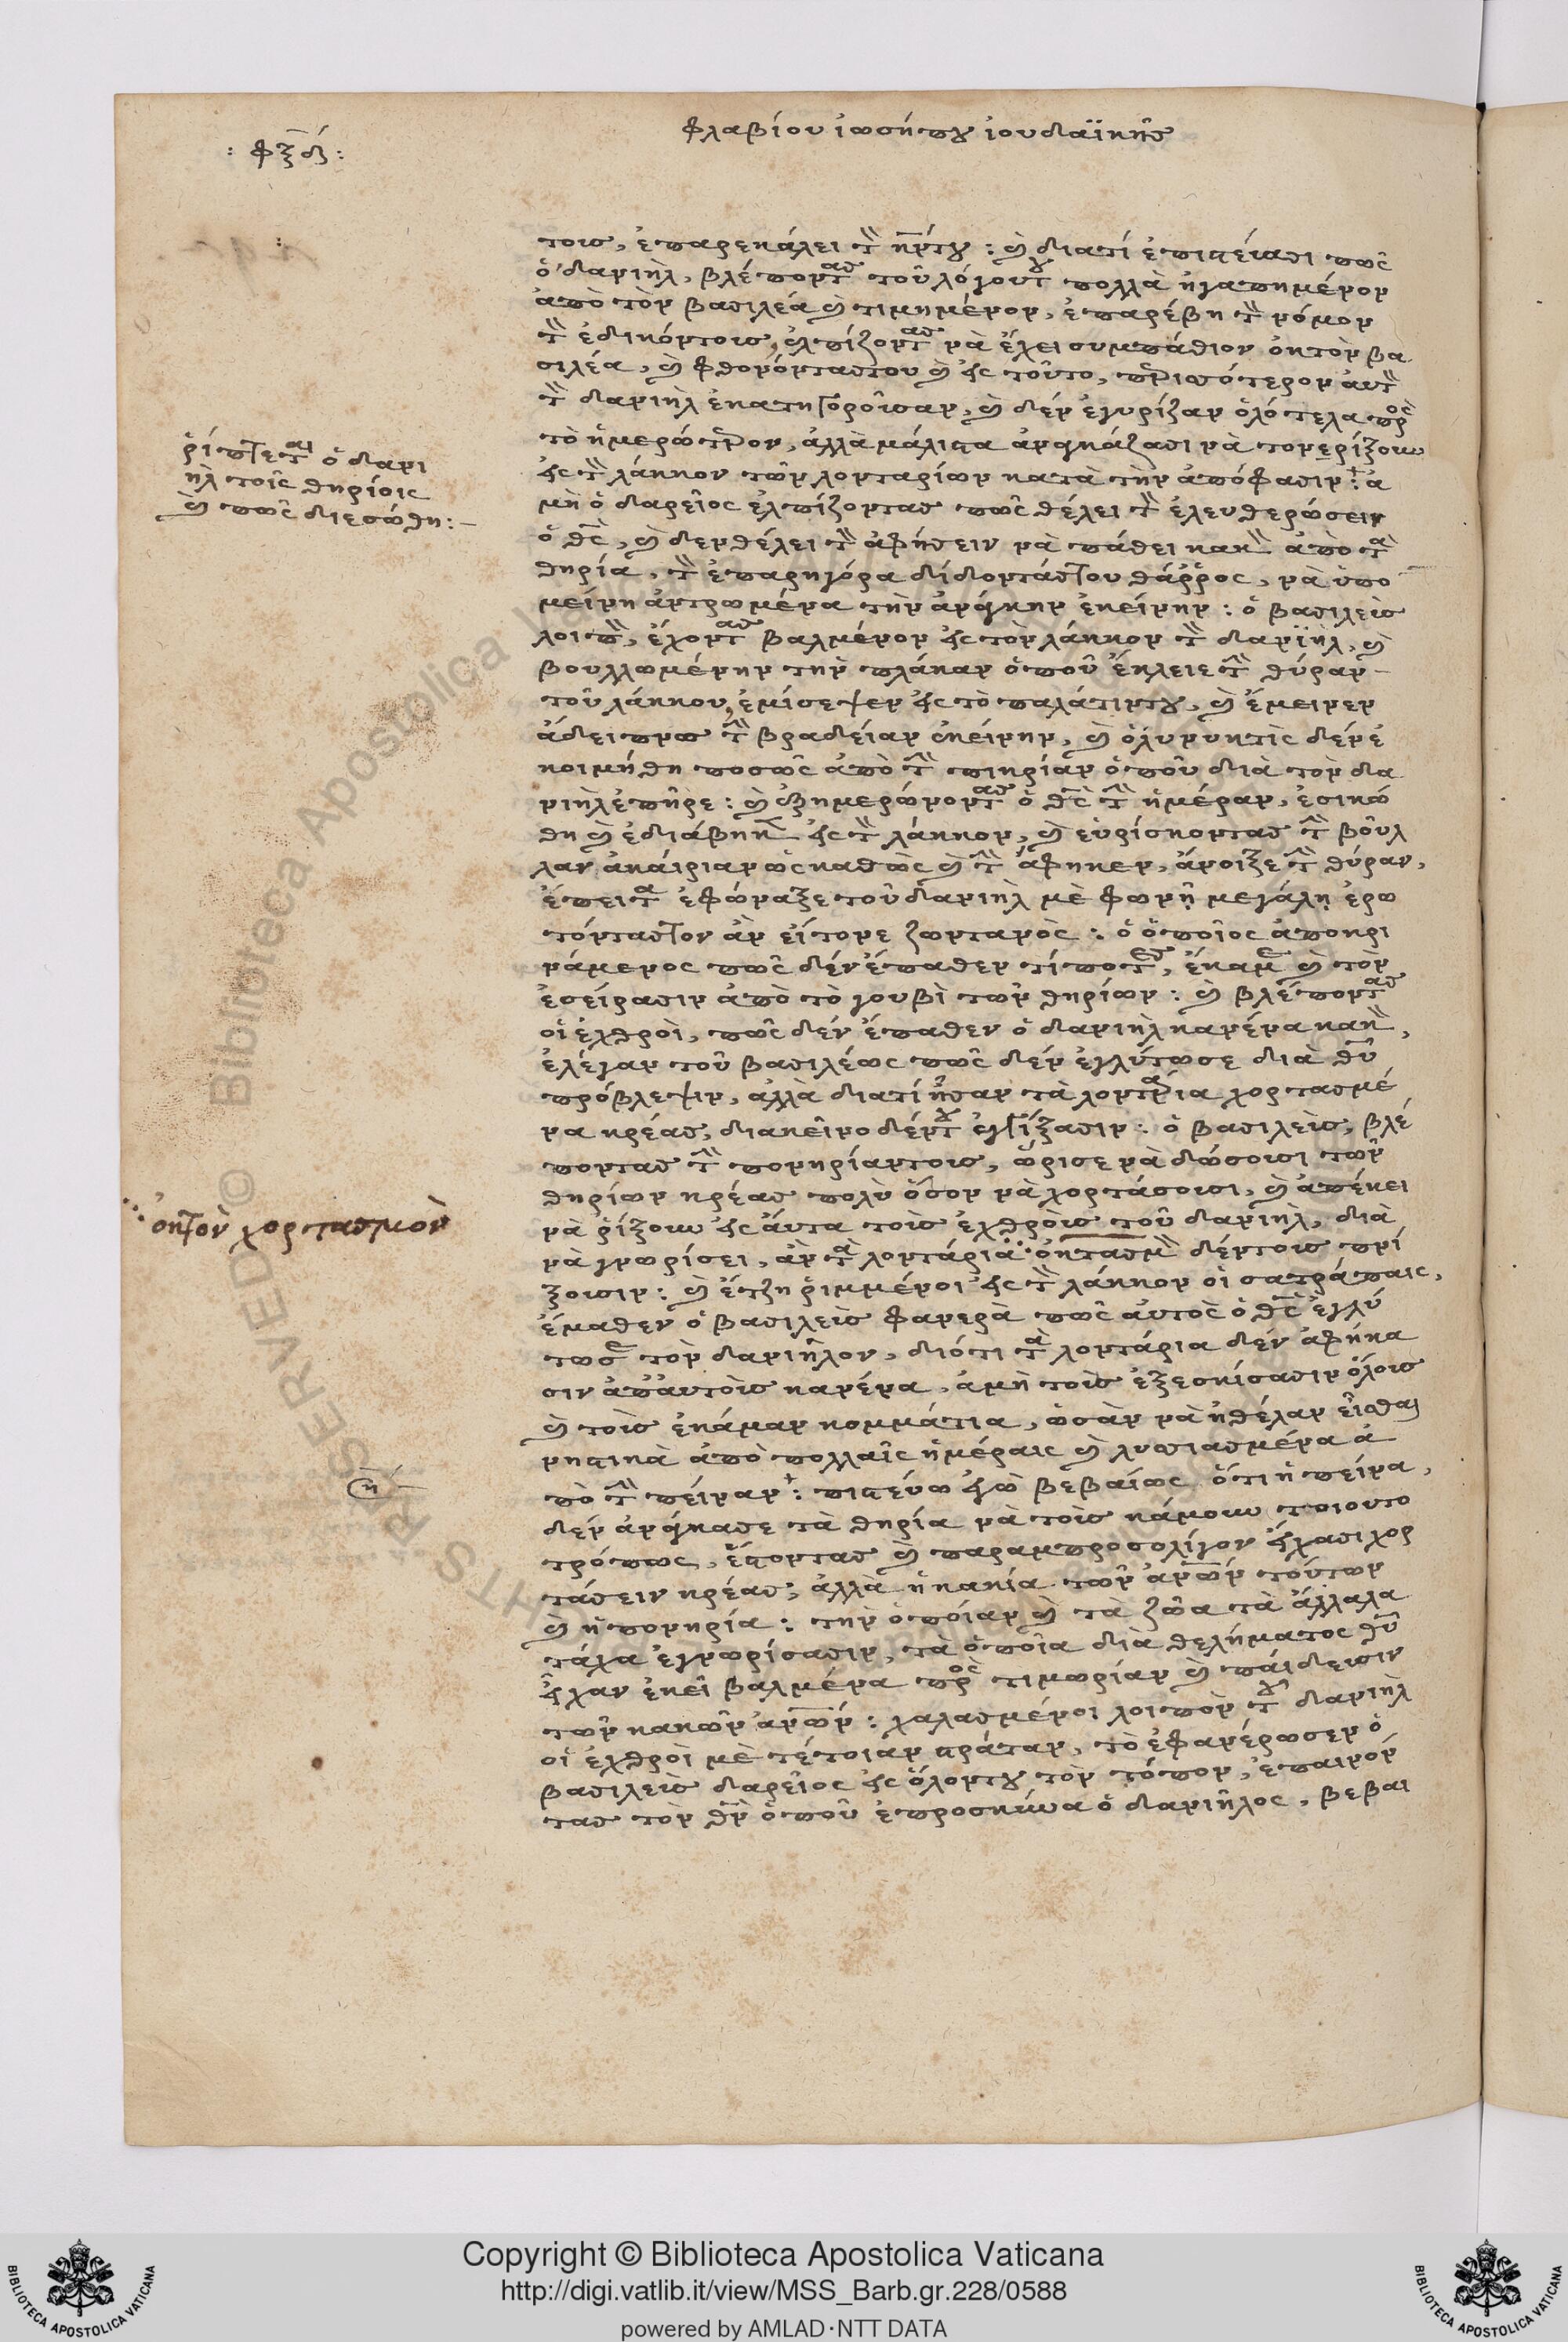 φλαβίου ἰωσήπου ἰουδαϊκῆς
: φξδ :
τους, ἐπαρεκάλει τὸν κύριόντου : καὶ διατί ἐπιστεύασι πῶς
ὁ δανιὴλ, βλέποντας τοῦ λόγουτου πολλὰ ἠγαπημένον
ἀπὸ τὸν βασιλέα καὶ τιμημένον, ἐπαρέβη τὸν νόμον
τὸν ἐδικόντους, ἐλπίζοντας νὰ ἔχει συμπάθιον ἐκ τὸν βα
σιλέα, καὶ φθονόντάστου καὶ εἰς τοῦτο, περισσότερον αὐτὸν
τὸν δανιὴλ ἐκατηγοροῦσαν, καὶ δὲν ἐγυρίζαν ὁλότελα πρὸς
τὸ ἡμερώτερον, ἀλλὰ μάλιστα ἀναγκάζασι νὰ τονερίξουν
εἰς τὸν λάκκον τῶν λονταρίων κατὰ τὴν ἀπόφασιν : ἀ
μὴ ὁ δαρεῖος ἐλπίζοντας πῶς θέλει τὸν ἐλευθερώσειν
ὁ θεὸς, καὶ δενθέλει τὸν ἀφήσειν νὰ πάθει κακὸν ἀπὸ τὰ
θηρία, τὸν ἐπαρηγόρα δίδοντάςτου θάῤῥος, νὰ ὑπο
μείνη ἀντρωμένα τὴν ἀνάγκην ἐκείνην : ὁ βασιλεὺς
λοιπὸν, ἔχοντας βαλμένον εἰς τὸν λάκκον τὸν δανϊὴλ, καὶ
βουλλωμένην τὴν πλάκαν ὁποῦ ἔκλειε τὴν θύραν
τοῦ λάκκου, ἐμίσεψεν εἰς τὸ παλάτιντου, καὶ ἔμεινεν
ἄδειπνος τὴν βραδείαν ἐκείνην, καὶ ὁλυνυκτὶς δένἐ
κοιμήθη ποσῶς ἀπὸ τὴν πικρίαν ὁποῦ διὰ τὸν δα
νιὴλἐπῆρε : καὶ ἐξημερώνοντας ὁ θεὸς τὴν ἡμέραν, ἐσικώ
θη καὶ ἐδιάβηκεν εἰς τὸν λάκκον, καὶ εὑρίσκοντας τὴν βοῦλ
λαν ἀκαίριαν ὡς καθὼς καὶ τὴν ἄφηκεν, ἄνοιξε τὴν θύραν,
ἔπειτα ἐφώναξε τοῦ δανιὴλ μὲ φωνῇ μεγάλῃ ἐρω
τόντάςτον ἂν εἴτονε ζωντανὸς : ὁ ὁποῖος ἀποκρι
νάμενος πῶς δένἔπαθεν τίποτες, ἔκαμε καὶ τὸν
ἐσείρασιν ἀπὸ τὸ γουβὶ τῶν θηρίων : καὶ βλέποντας
οἱ ἐχθροὶ, πῶς δὲν ἔπαθεν ὁ δανιὴλ κανένα κακὸν,
ἐλέγαν τοῦ βασιλέως πῶς δὲν ἐγλύτωσε διὰ θεοῦ
πρόβλεψιν, ἀλλὰ διατί ἦσαν τὰ λοντάρια χορτασμέ
να κρέας, διακεῖνο δέντου ἐγγίξασιν : ὁ βασιλεὺς, βλέ
ποντας τὴν πονηρίαντους, ὥρισε νὰ δώσουσι τῶν
θηρίων κρέας πολὺ ὅσον νὰ χορτάσουσι, καὶ ἀπέκει
νὰ ῥίξουν εἰς αὐτα τοὺς ἐχθροὺς τοῦ δανιὴλ, διὰ
νὰ γνωρίσει, ἂν τὰ λοντάρια ἐκτασμὸν δέντους πρί
ξουσιν : καὶ ἔτζη ῥιμμένοι εἰς τὸν λάκκον οἱ σατράπαις,
ἔμαθεν ὁ βασιλεὺς φανερὰ πῶς αὐτὸς ὁ θεὸς ἐγλύ
τωσε τὸν δανιῆλον, διότι τὰ λοντάρια δὲν ἀφήκα
σιν ἀπ'αυτοὺς κανένα, ἀμὴ τοὺς ἐξεσκίσασιν ὅλους
καὶ τοὺς ἐκάμαν κομμάτια, ὡσὰν νὰ ἠθέλαν εἶσθαι
νηστικὰ ἀπὸ πολλαῖς ἡμέραις καὶ λυσσιασμένα ἀ
πὸ τὴν πεῖναν : πιστεύω ἐγὼ βεβαίως ὅτι ἡ πείνα,
δὲν ἀνάγκασε τὰ θηρία νὰ τοὺς κάμουν τοιουτο
τρόπως, ἔστοντας καὶ παραμπροσολίγον εἴχασι χορ
τάσειν κρέας, ἀλλὰ ἡ κακία τῶν ἀνθρώπων τούτων
καὶ ἡ πονηρία : τὴν ὁποίαν καὶ τὰ ζῶα τὰ ἄλλαλα
τάχα ἐγνωρίσασιν, τὰ ὁποῖα διὰ θελήματος θεοῦ
εἶχαν ἐκεῖ βαλμένα πρὸς τιμωρίαν καὶ παίδευσιν
τῶν κακῶν ἀνθρώπων : χαλασμένοι λοιπὸν τοῦ δανιὴλ
οἱ ἐχθροὶ μὲ τέτοιαν στράταν, τὸ ἐφανέρωσεν ὁ
βασιλεὺς δαρεῖος εἰς ὅλοντου τὸν τόπον, ἐπαινόν
τας τον θεὸν ὁποῦ ἐπροσκύνα ὁ δανιῆλος, βεβαι
ῥίπτεται ὁ δανι
ὴλ τοῖς θηρίοις
καὶ πῶς διεσώθη :
ἐκτὸν χορτασμὸν
Copyright © Biblioteca Apostolica Vaticana
http://digi.vatlib.it/view/MSS_Barb.gr.228/0588
powered by AMLAD·NTT DATA
BIBLIOTECA APOSTOLICA VATICANA
BIBLIOTECA APOSTOLICA VATICANA